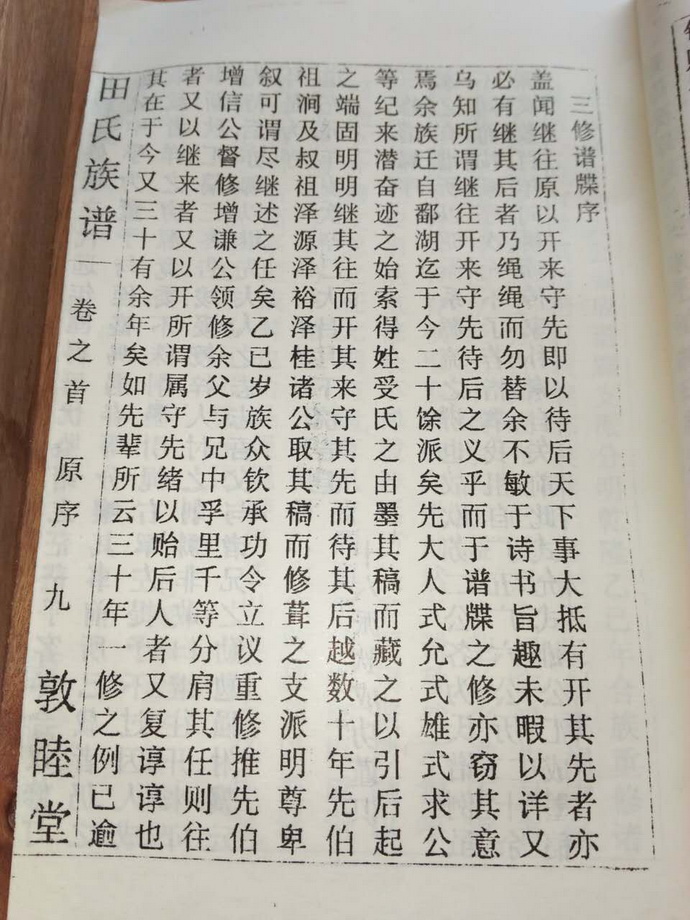 三修谱牒序
盖闻继往原以开来守先即以待后天下事大抵有开其先者亦
必有继其后者乃绳绳而勿替余不敏于诗书旨趣未暇以详又
乌知所谓继往开来守先待后之义乎而于谱牒之修亦窃其意
焉余族迁自鄱湖迄于今二十馀派矣先大人式允式雄式求公
等纪来潜奋迹之始索得姓受氏之由墨其稿而藏之以引后起
之端固明明继其往而开其来守其先而待其后越数十年先伯
祖涧及叔祖泽源泽裕泽桂诸公取其稿而修葺之支派明尊卑
叙可谓尽继述之任矣乙巳岁族众钦承功令立议重修推先伯
增信公督修增谦公领修余父与兄中孚里千等分肩其任则往
者又以继来者又以开所谓属守先绪以贻后人者又复谆谆也
其在于今又三十有余年矣如先辈所云三十年一修之例已逾
田氏族谱 卷之首 原序 九 敦睦堂